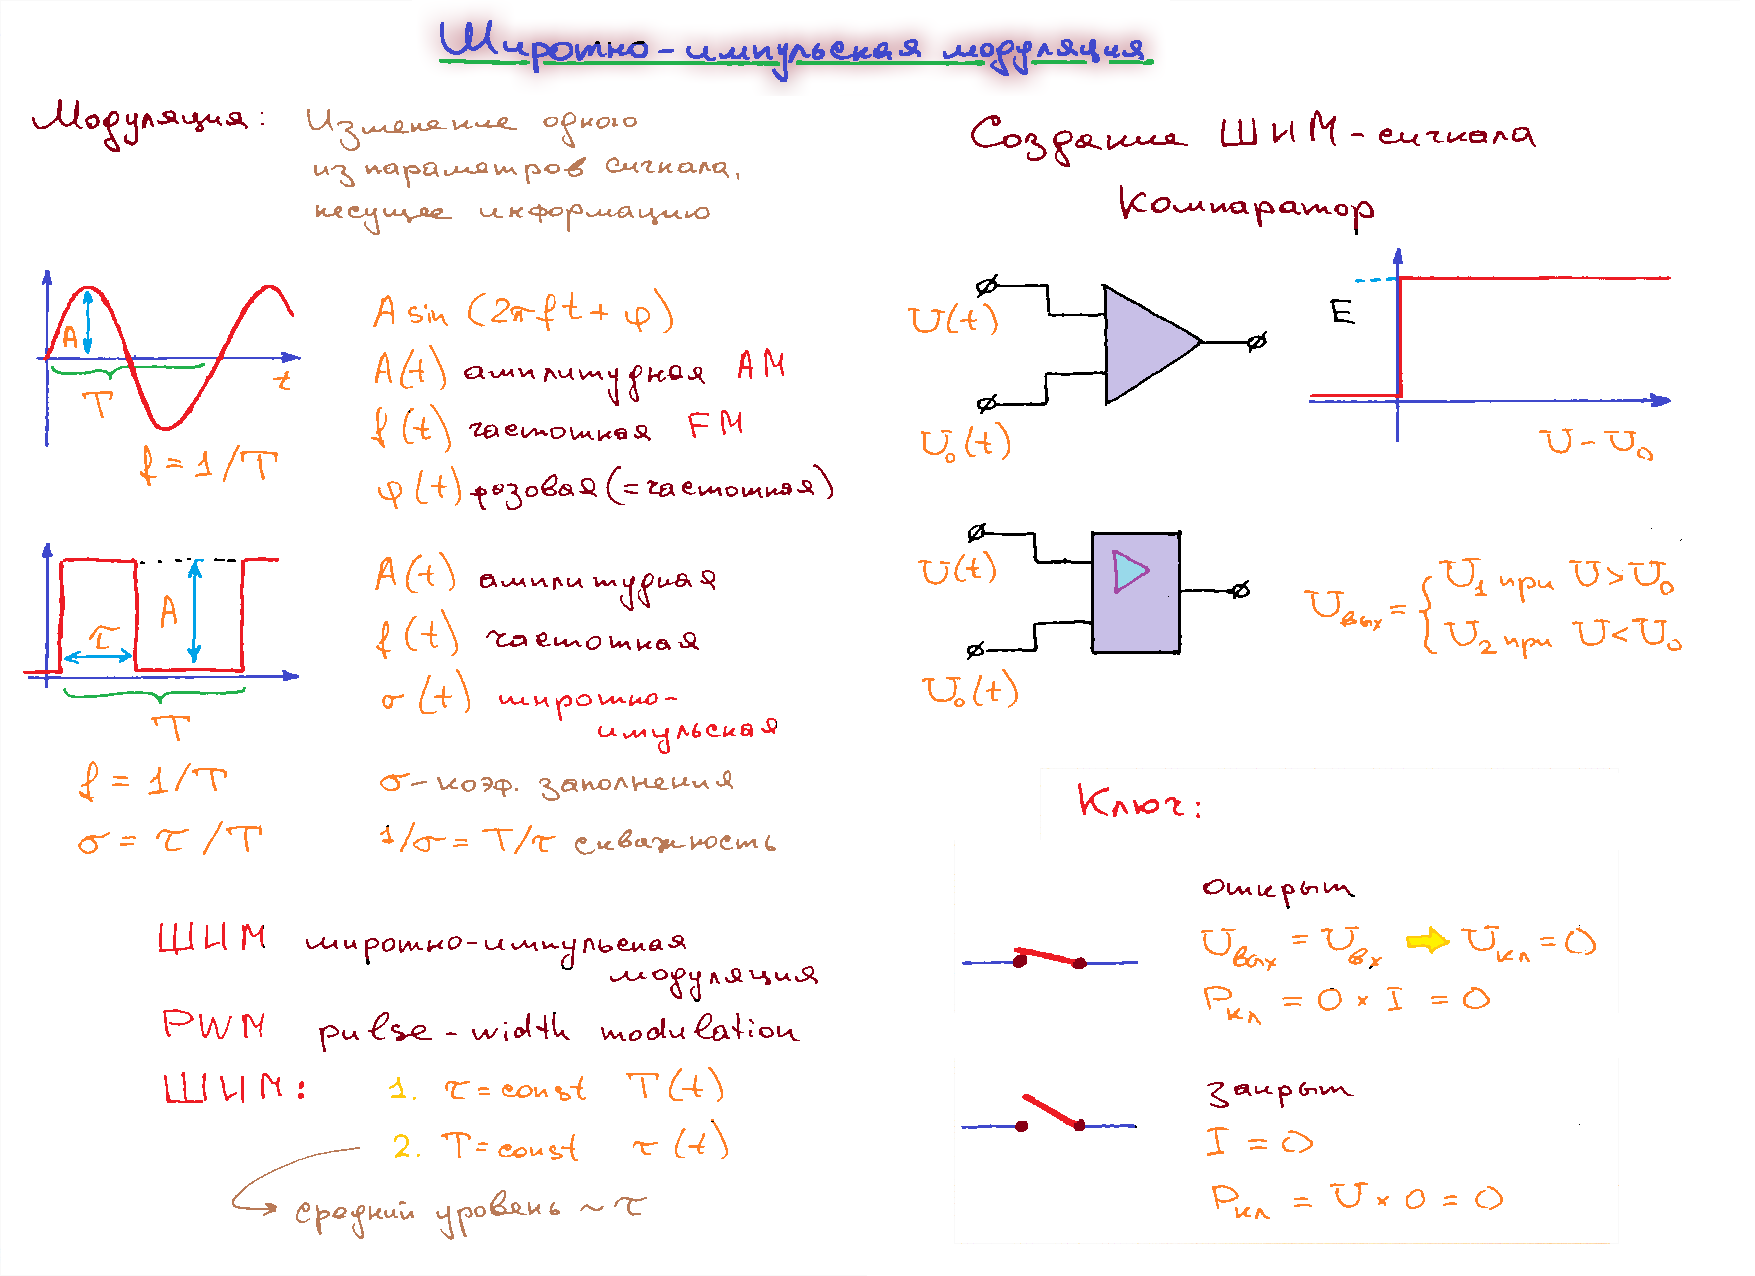 Широтно-импульская модуляция
Модуляция: Изменение одного
из параметров сигнала,
несущее информацию
A
t
T
f = 1/T
A sin (2πft + φ)
A(t) амплитудная AM
f(t) частотная FM
φ(t) фазовая (= частотная)
A
τ
T
f = 1/T
σ = τ/T
A(t) амплитудная
f(t) частотная
σ(t) широтно-
имульская
σ - коэф. заполнения
1/σ = T/τ скважность
ШИМ широтно-импульская
модуляция
PWM pulse-width modulation
ШИМ: 1. τ = const T(t)
2. T = const τ(t)
средний уровень ~ τ
Создание ШИМ-сигнала
Компаратор
U(t)
U₀(t)
E
U - U₀
U(t)
U₀(t)
Uвых = { U₁ при U > U₀
U₂ при U < U₀
Ключ:
открыт
Uвых = Uвх ➡ Uкл = 0
Pкл = 0 × I = 0
закрыт
I = 0
Pкл = U × 0 = 0